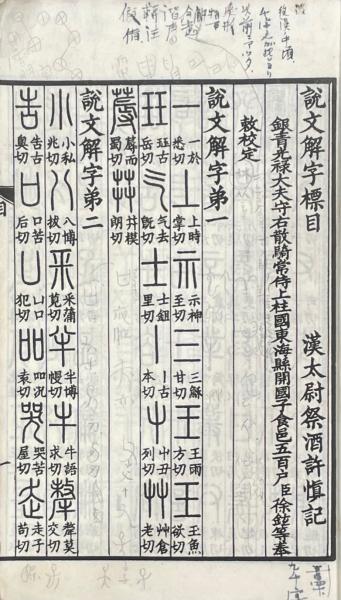 說文解字標目 漢太尉祭酒許慎記
銀青光祿大夫守右散騎常侍上柱國東海縣開國子食邑五百戶臣徐鉉等奉
敕校定
說文解字第一
一於悉切 丄上時掌切 示示神至切 三三穌甘切 王王雨方切 玉玉魚欲切
玨玨古岳切 气气去旣切 士士鉏里切 丨丨古本切 屮屮丑列切 艸艸倉老切
蓐蓐而蜀切 茻茻模朗切
說文解字第二
小小私兆切 八八博拔切 釆釆蒲莧切 半半博幔切 牛牛語求切 犛犛莫交切
告告古奧切 口口苦后切 凵凵口犯切 吅吅況袁切 哭哭苦屋切 走走子苟切